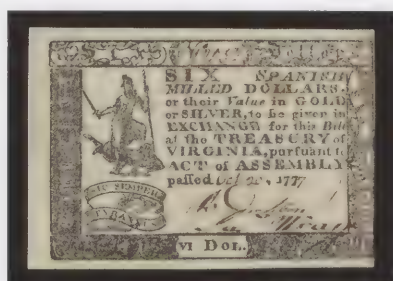 SIX SPANISH
MILLED DOLLARS,
or their Value in GOLD
or SILVER, to be given in
EXCHANGE for this Bill
at the TREASURY of
VIRGINIA, pursuant to
ACT of ASSEMBLY
passed Oct 20, 1777
SIC SEMPER
TYRANNIS
VI DOL.